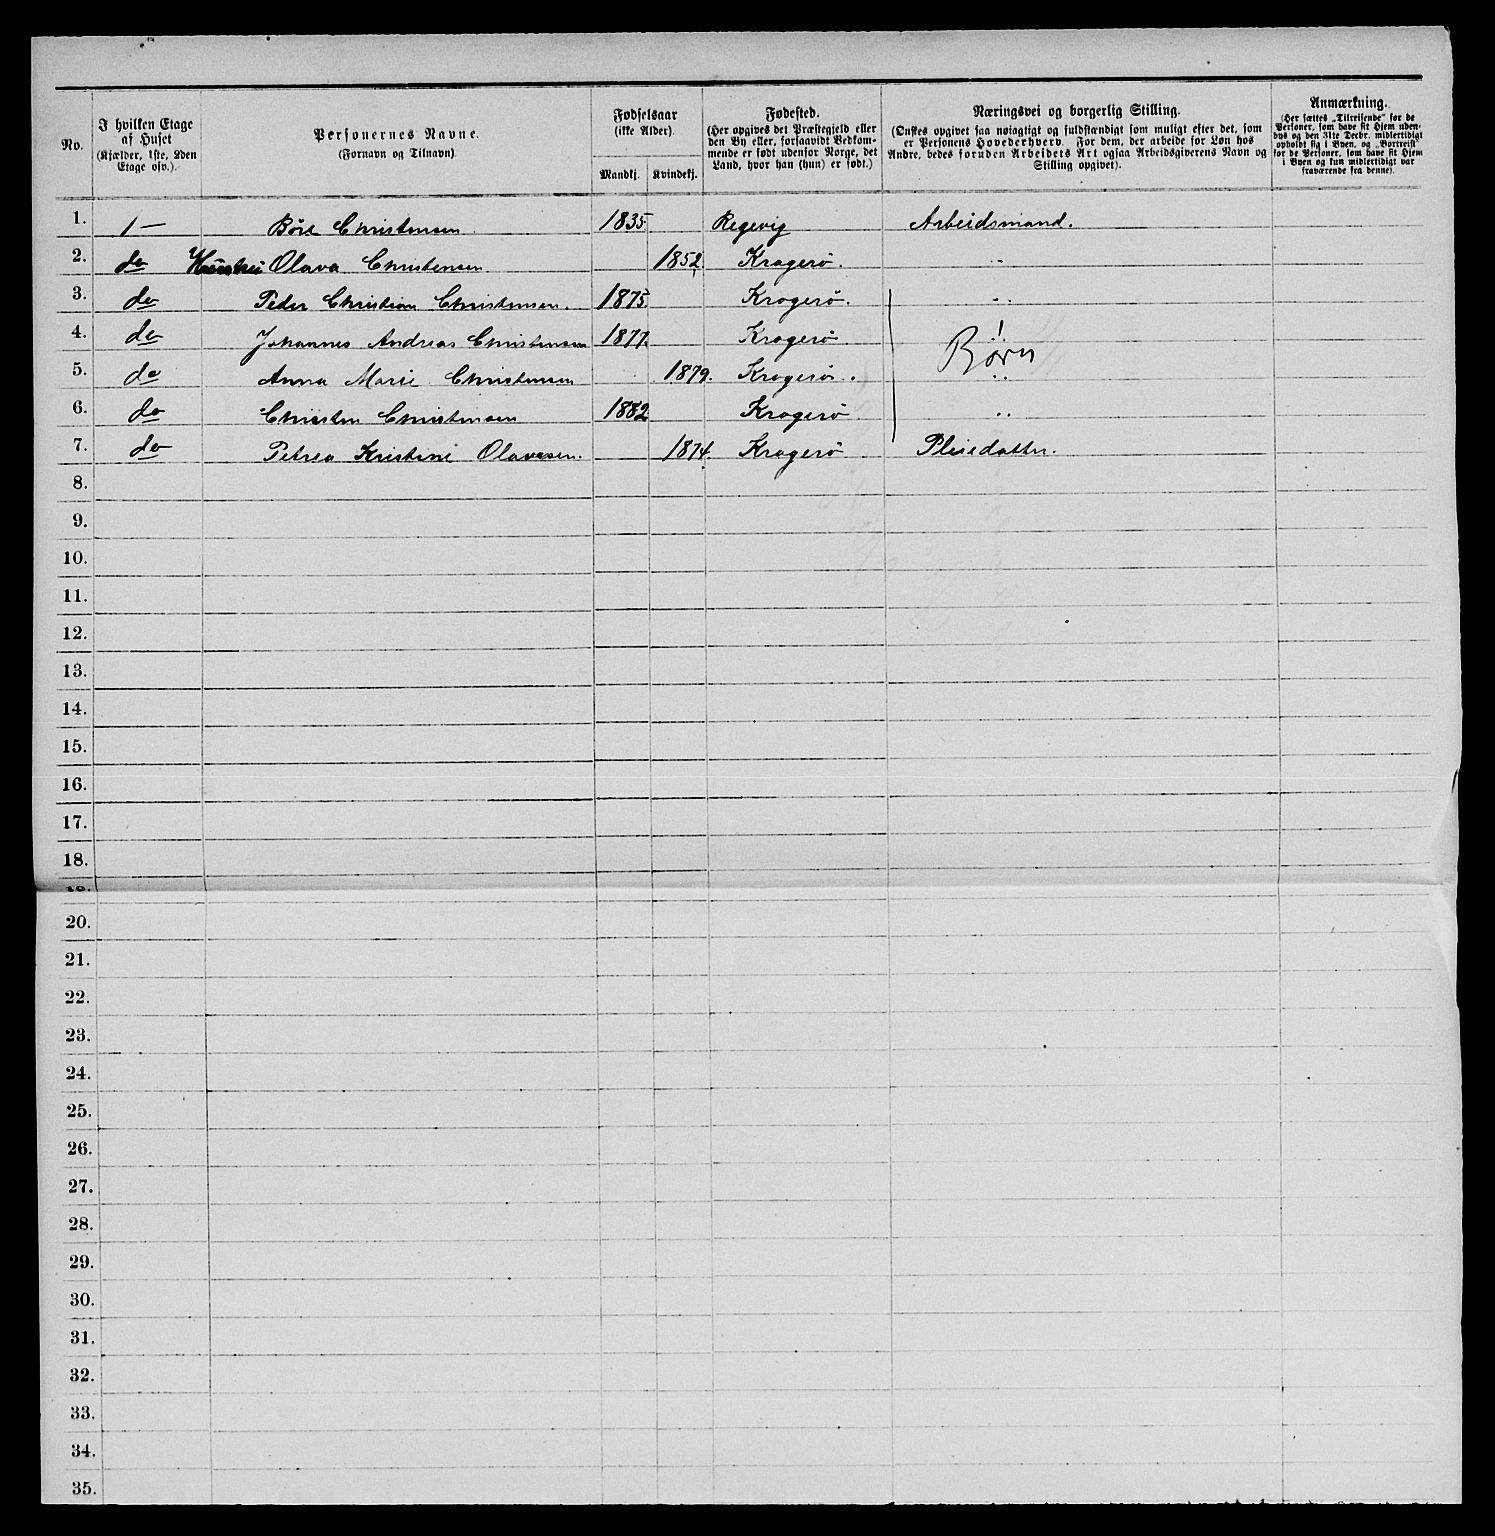 No.
I hvilken Etage af Huset (Kjælder, 1ste, 2den Etage osv.).
Personernes Navne. (Fornavn og Tilnavn)
Fødselsaar (ikke Alder).
Mandkj. Kvindekj.
Fødested. (Her opgives det Præstegjeld eller den By eller, forsaavidt Vedkommende er født udenfor Norge, det Land, hvor han (hun) er født.)
Næringsvei og borgerlig Stilling. (Ønskes opgivet saa nøiagtigt og fuldstændigt som muligt efter det, som er Personens Hovederhverv. For dem, der arbeide for Løn hos Andre, bedes foruden Arbeidets Art ogsaa Arbeidsgiverens Navn og Stilling opgivet).
Anmærkning. (Her sættes „Tilreisende" for de Personer, som have sit Hjem udenbys og den 31te Decbr. midlertidigt opholdt sig i Byen, og „Bortreist" for de Personer, som have sit Hjem i Byen og kun midlertidigt var fraværende fra denne).
1. 1 — Christensen 1835 Regevig Arbeidsmand.
2. do Olava Christensen 1852. Kragerö. "
3. do Peder Christian Christensen. 1875. Kragerö. "
4. do Johannes Andreas Christensen 1877. Kragerö "
Børn
5. do Anna Marie Christensen 1879. Kragerö. "
6. do Christen Christensen 1882 Kragerö "
7. do Petrea Kristine Olavesen. 1874. Kragerö Pleiedatter.
8.
9.
10.
11.
12.
13.
14.
15.
16.
17.
18.
20.
21.
22.
23.
24.
25.
26.
27.
28.
29.
30.
31.
32.
33.
34.
35.